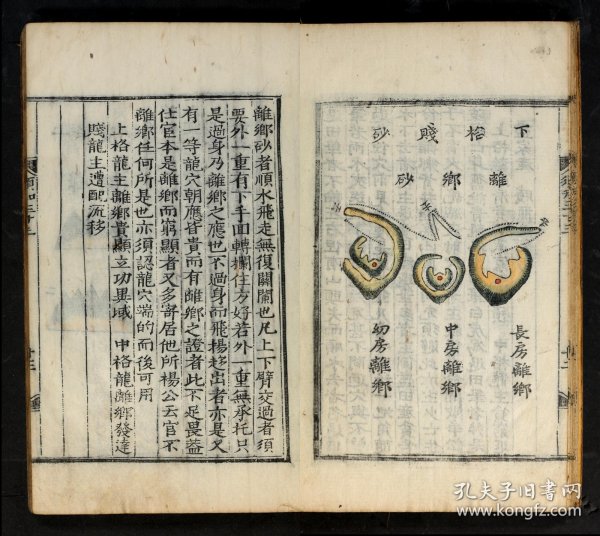 下格賤砂
離鄉砂
長房離鄉
中房離鄉
幼房離鄉
離鄉砂者順水飛走無復關闌也凡上下臂交過者須
要外一重有下手回轉欄住方好若外一重無承托只
是過身乃離鄉之應也不過身而飛揚趍出者亦是又
有一等龍穴朝應皆貴而有離鄉之證者此下足畏蓋
仕宦本是離鄉而窮顯者又多寄居他所楊公云官不
離鄉任何所是也亦須認龍穴端的而後可用
上格龍主離鄉貴顯立功異域
中格龍離鄉發達
賤龍主遭配流移
孔夫子旧书网
www.kongfz.com